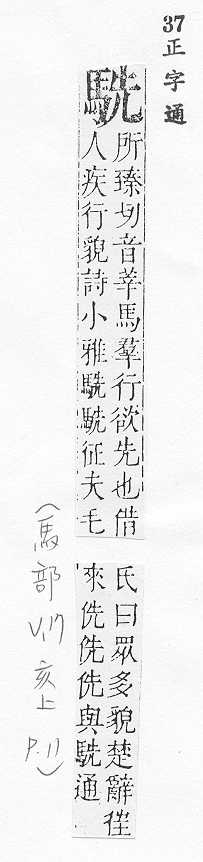 37正字通
駪
所臻切音莘馬羣行欲先也借
人疾行貌詩小雅駪駪征夫毛
氏曰眾多貌楚辭徃
來侁侁侁與駪通
(馬部 V.17 亥上 P.11)